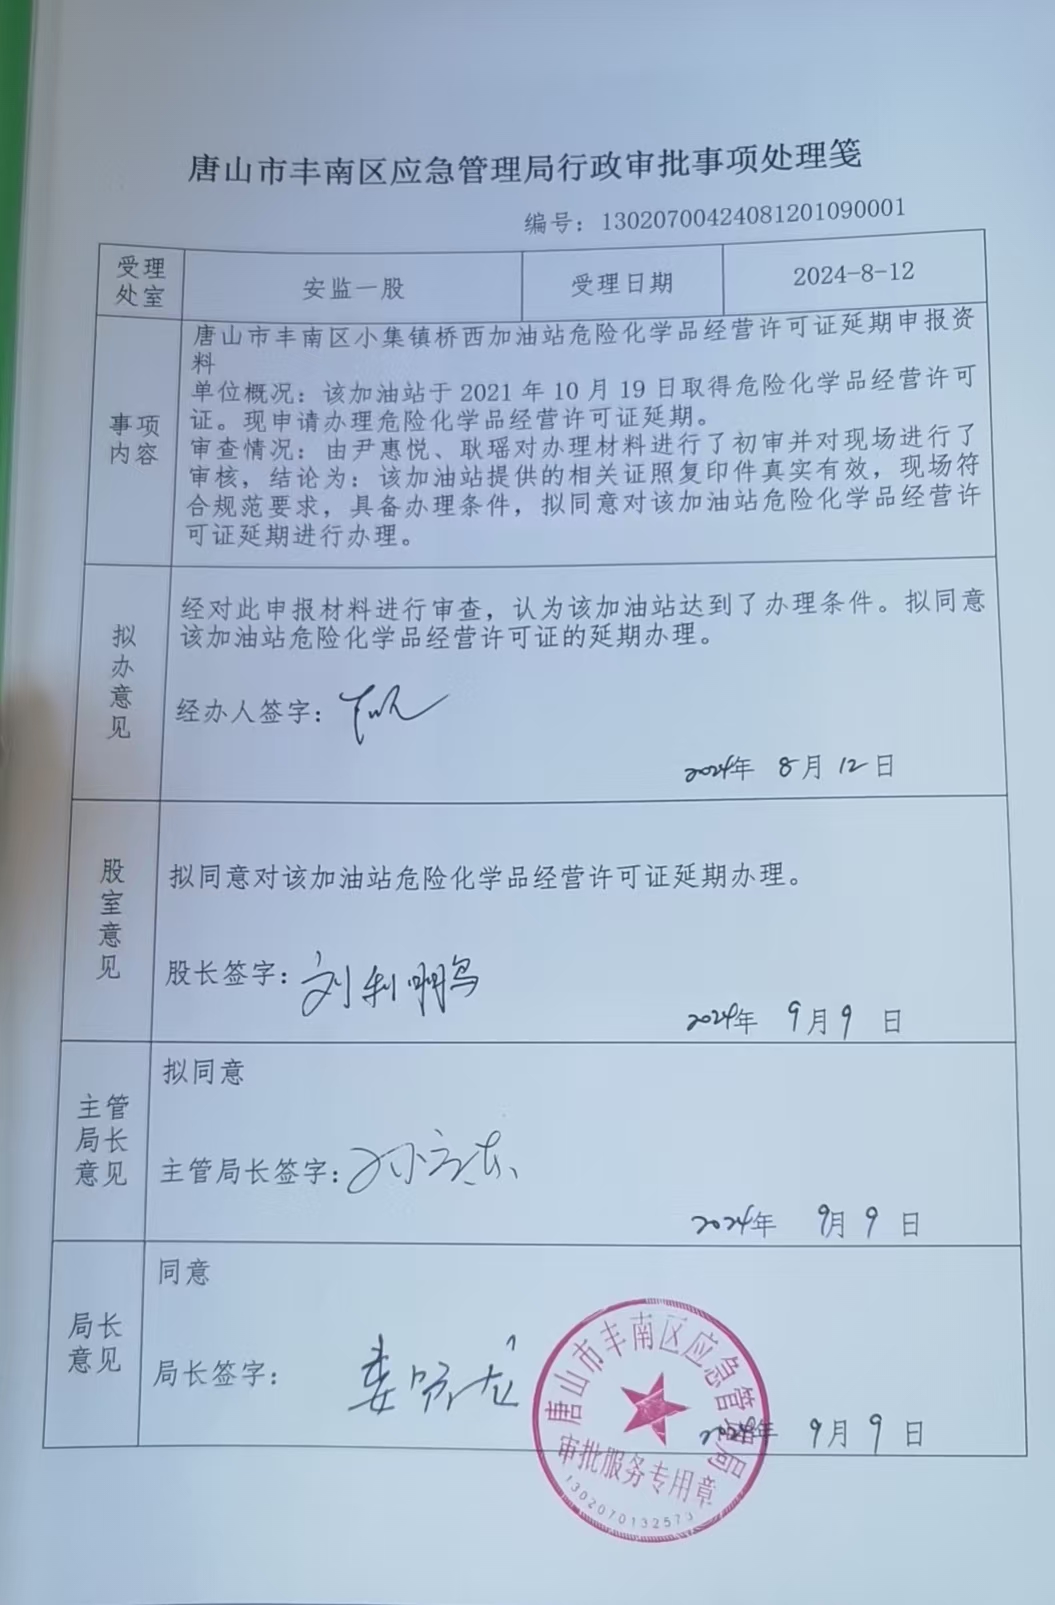 唐山市丰南区应急管理局行政审批事项处理笺
编号：13020700424081201090001
受理
处室
安监一股
受理日期
2024-8-12
事项
内容
唐山市丰南区小集镇桥西加油站危险化学品经营许可证延期申报资
料
单位概况：该加油站于 2021 年 10 月 19 日取得危险化学品经营许可
证。现申请办理危险化学品经营许可证延期。
审查情况：由尹惠悦、耿瑶对办理材料进行了初审并对现场进行了
审核，结论为：该加油站提供的相关证照复印件真实有效，现场符
合规范要求，具备办理条件，拟同意对该加油站危险化学品经营许
可证延期进行办理。
拟
办
意
见
经对此申报材料进行审查，认为该加油站达到了办理条件。拟同意
该加油站危险化学品经营许可证的延期办理。
经办人签字：
2024年 8月12日
股
室
意
见
拟同意对该加油站危险化学品经营许可证延期办理。
股长签字：刘利鹏
2024年 9月9 日
主管
局长
意见
拟同意
主管局长签字：
2024年 9月9 日
局长
意见
同意
局长签字：
2024年 9月9日
唐山市丰南区应急管理局
审批服务专用章
1302070132573